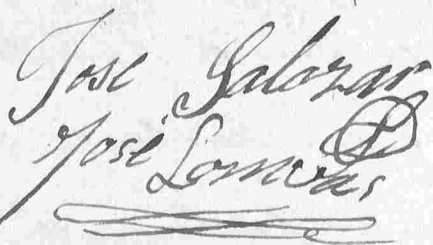 Jose Salazar
José Lomvas